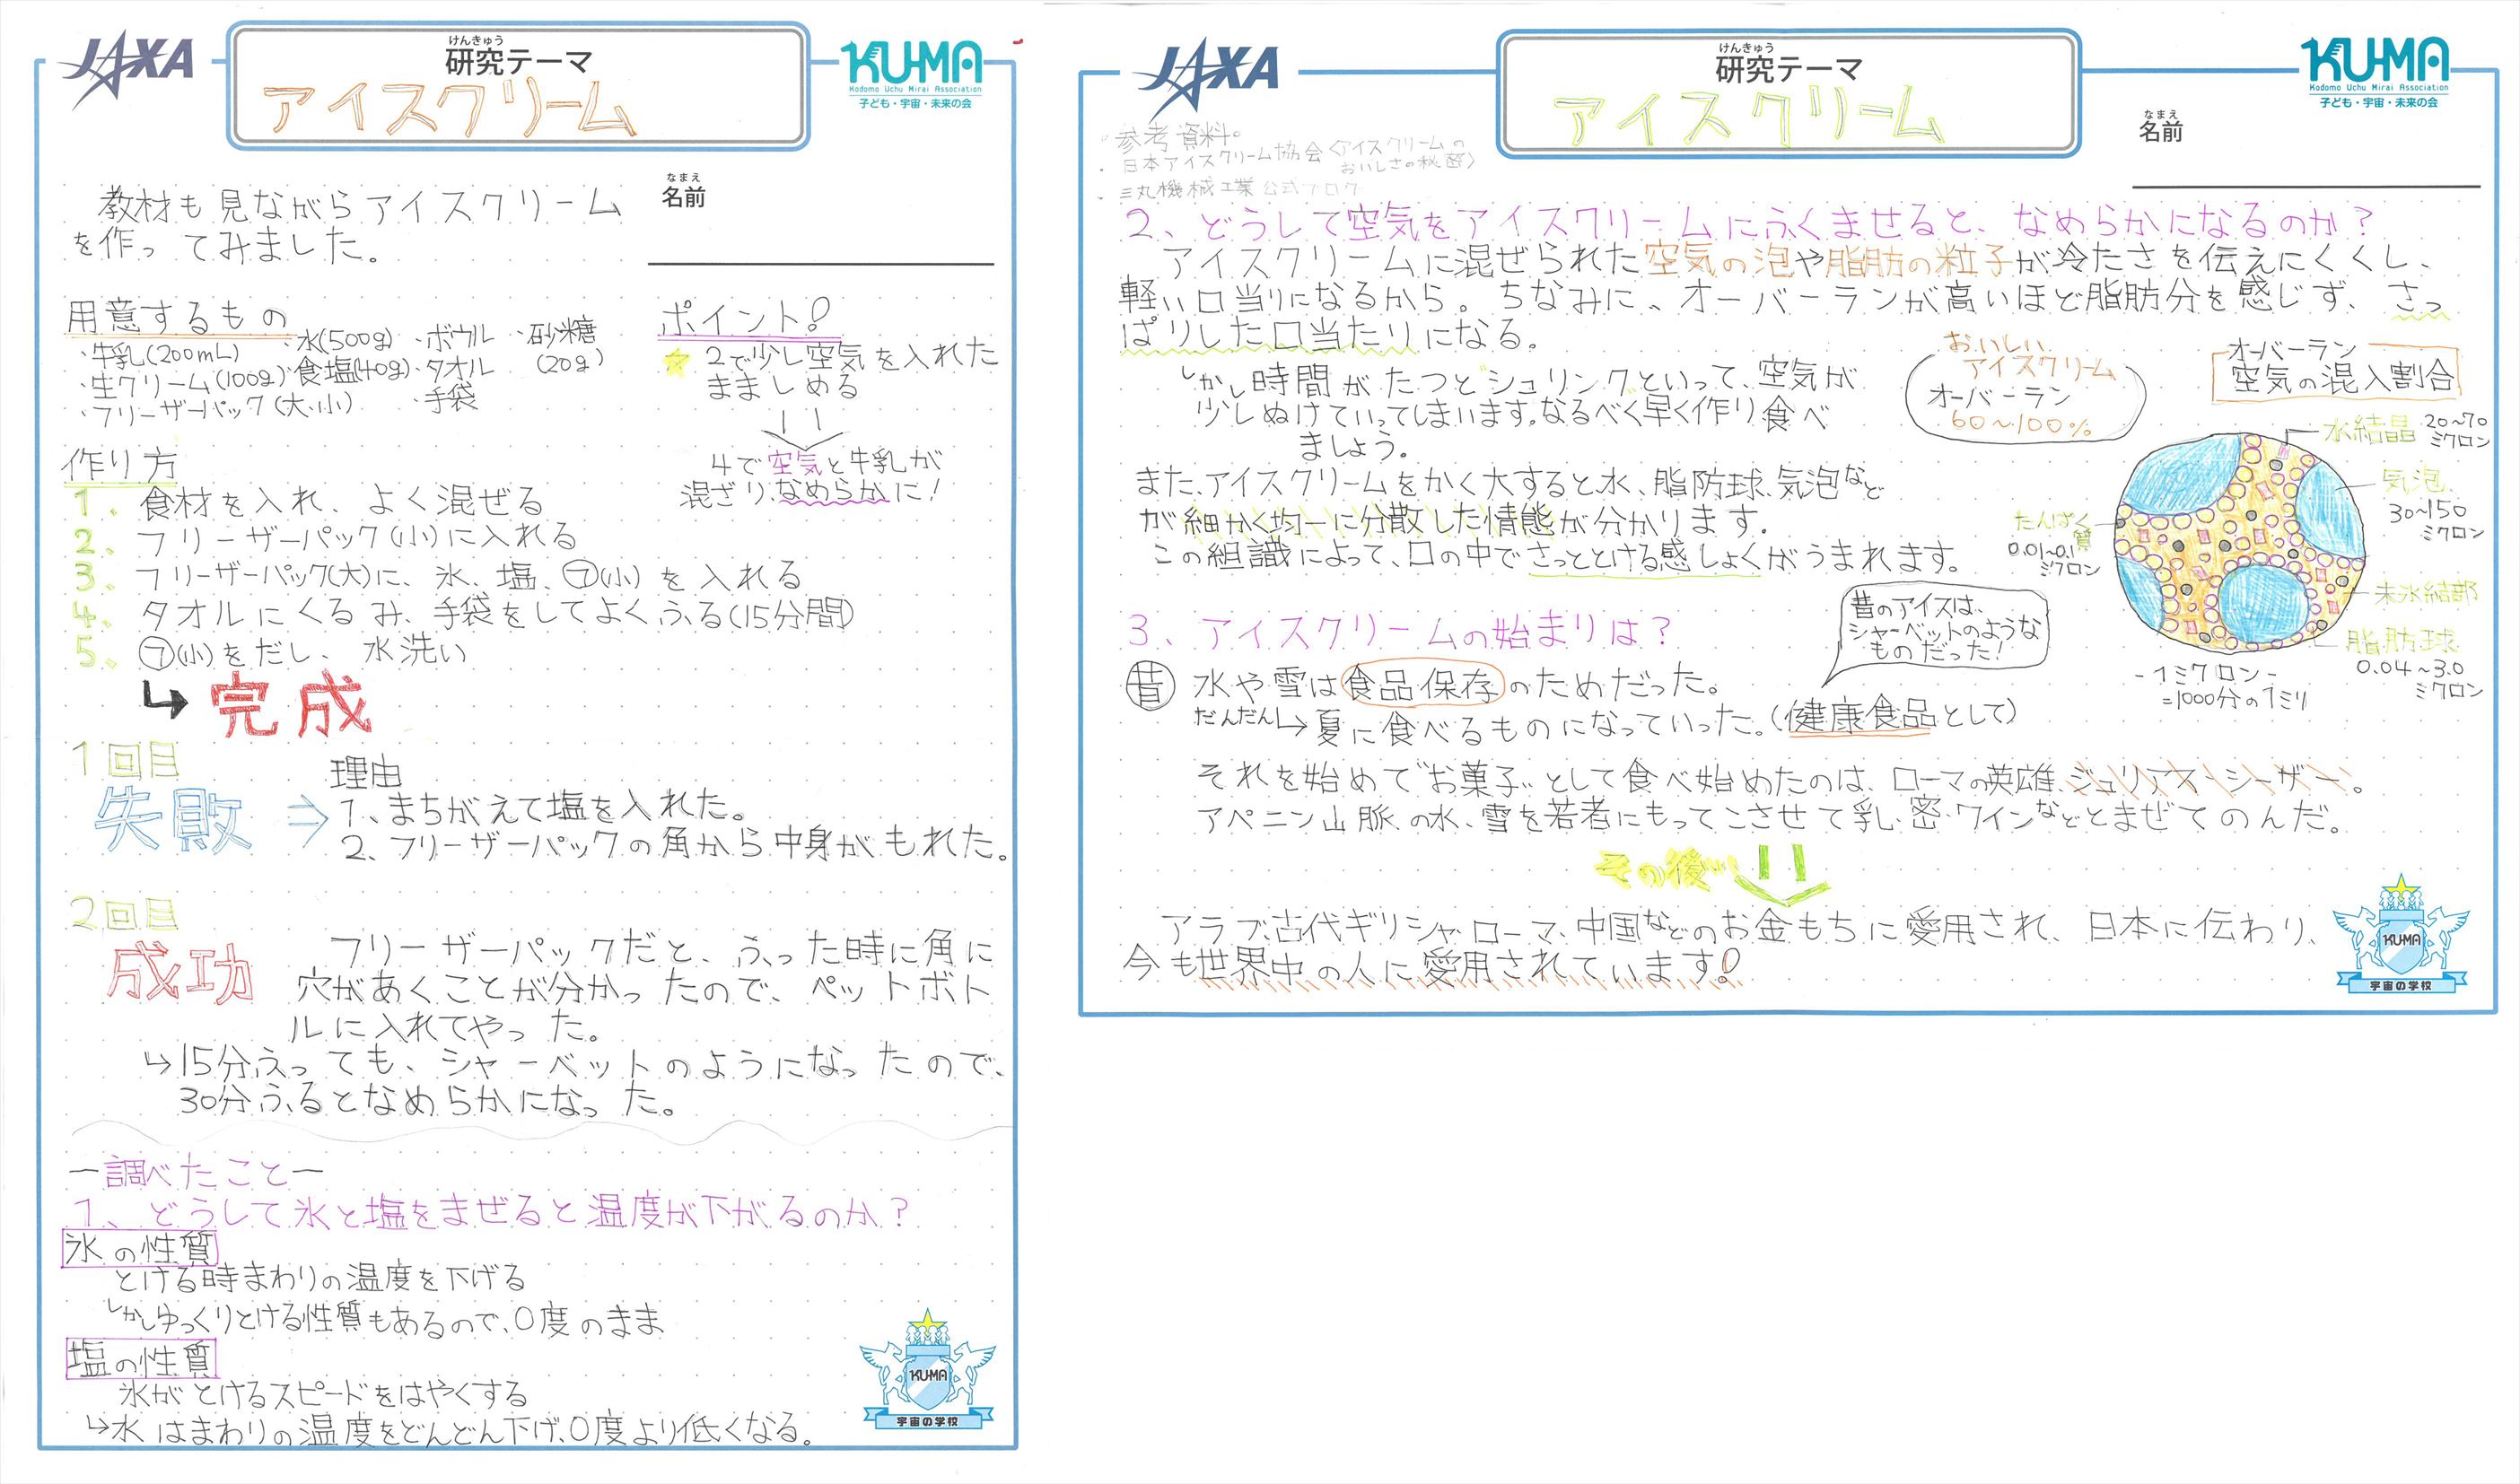 JAXA
けんきゅう
研究テーマ
アイスクリーム
KU-MA
Kodomo Uchu Mirai Association
子ども・宇宙・未来の会
なまえ
名前
教材も見ながらアイスクリーム
を作ってみました。
用意するもの
・牛乳(200mL)
・生クリーム(100g)
・フリーザーパック(大・小)
・氷(500g)
・食塩(40g)
・ボウル
・タオル
・手袋
・砂糖
(20g)
ポイント!
2で少し空気を入れた
まましめる
4で空気と牛乳が
混ざり、なめらかに!
作り方
1. 食材を入れ、よく混ぜる
2. フリーザーパック(小)に入れる
3. フリーザーパック(大)に、氷、塩、フ(小)を入れる
4. タオルにくるみ、手袋をしてよくふる(15分間)
5. フ(小)をだし、水洗い
完成
1回目
失敗
理由
1、まちがえて塩を入れた。
2、フリーザーパックの角から中身がもれた。
2回目
成功
フリーザーパックだと、ふった時に角に
穴があくことが分かったので、ペットボト
ルに入れてやった。
15分ふっても、シャーベットのようになったので、
30分ふるとなめらかになった。
ー調べたことー
1、どうして氷と塩をまぜると温度が下がるのか?
氷の性質
とける時まわりの温度を下げる
しかしゆっくりとける性質もあるので、0度のまま
塩の性質
氷がとけるスピードをはやくする
氷はまわりの温度をどんどん下げ、0度より低くなる。
KU-MA
宇宙の学校
JAXA
けんきゅう
研究テーマ
アイスクリーム
KU-MA
Kodomo Uchu Mirai Association
子ども・宇宙・未来の会
なまえ
名前
参考資料
・日本アイスクリーム協会〈アイスクリームの
おいしさの秘密〉
・三丸機械工業公式ブログ
2、どうして空気をアイスクリームにふくませると、なめらかになるのか?
アイスクリームに混ぜられた空気の泡や脂肪の粒子が冷たさを伝えにくくし、
軽い口当りになるから。ちなみに、オーバーランが高いほど脂肪分を感じず、さっ
ぱりした口当たりになる。
しかし時間がたつとシュリンクといって、空気が
少しぬけていってしまいます。なるべく早く作り食べ
ましょう。
おいしい
アイスクリーム
オーバーラン
60〜100%
オーバーラン
空気の混入割合
また、アイスクリームをかく大すると氷、脂肪球、気泡など
が細かく均一に分散した情態が分かります。
この組識によって、口の中でさっととける感しょくがうまれます。
氷結晶 20〜70
ミクロン
気泡
30〜150
ミクロン
たんぱく
質
0.01〜0.1
ミクロン
未氷結部
脂肪球
0.04〜3.0
ミクロン
-1ミクロン-
=1000分の1ミリ
3、アイスクリームの始まりは?
昔のアイスは、
シャーベットのような
ものだった!
昔 氷や雪は食品保存のためだった。
だんだん 夏に食べるものになっていった。(健康食品として)
それを始めて"お菓子"として食べ始めたのは、ローマの英雄、ジュリアス・シーザー。
アペニン山脈の氷、雪を若者にもってこさせて乳・密・ワインなどとまぜてのんだ。
その後…
アラブ、古代ギリシャ、ローマ、中国などのお金もちに愛用され、日本に伝わり、
今も世界中の人に愛用されています!
KU-MA
宇宙の学校